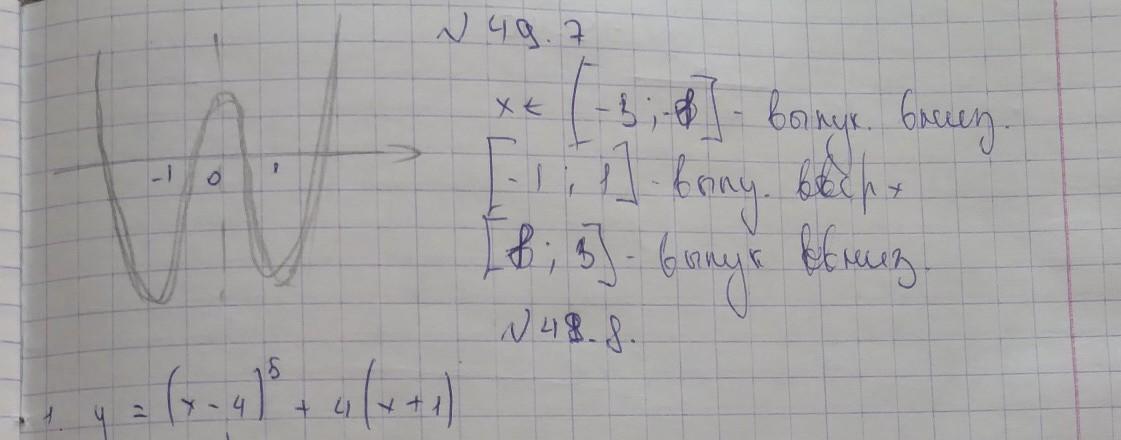 № 49.7
x ∈ [-3; -1] - выпук. вниз.
[-1; 1] - выпу. вверх
[1; 3] - выпук вниз.
-1 0 1
№ 48.8.
1. y = (x-4)^5 + 4(x+1)